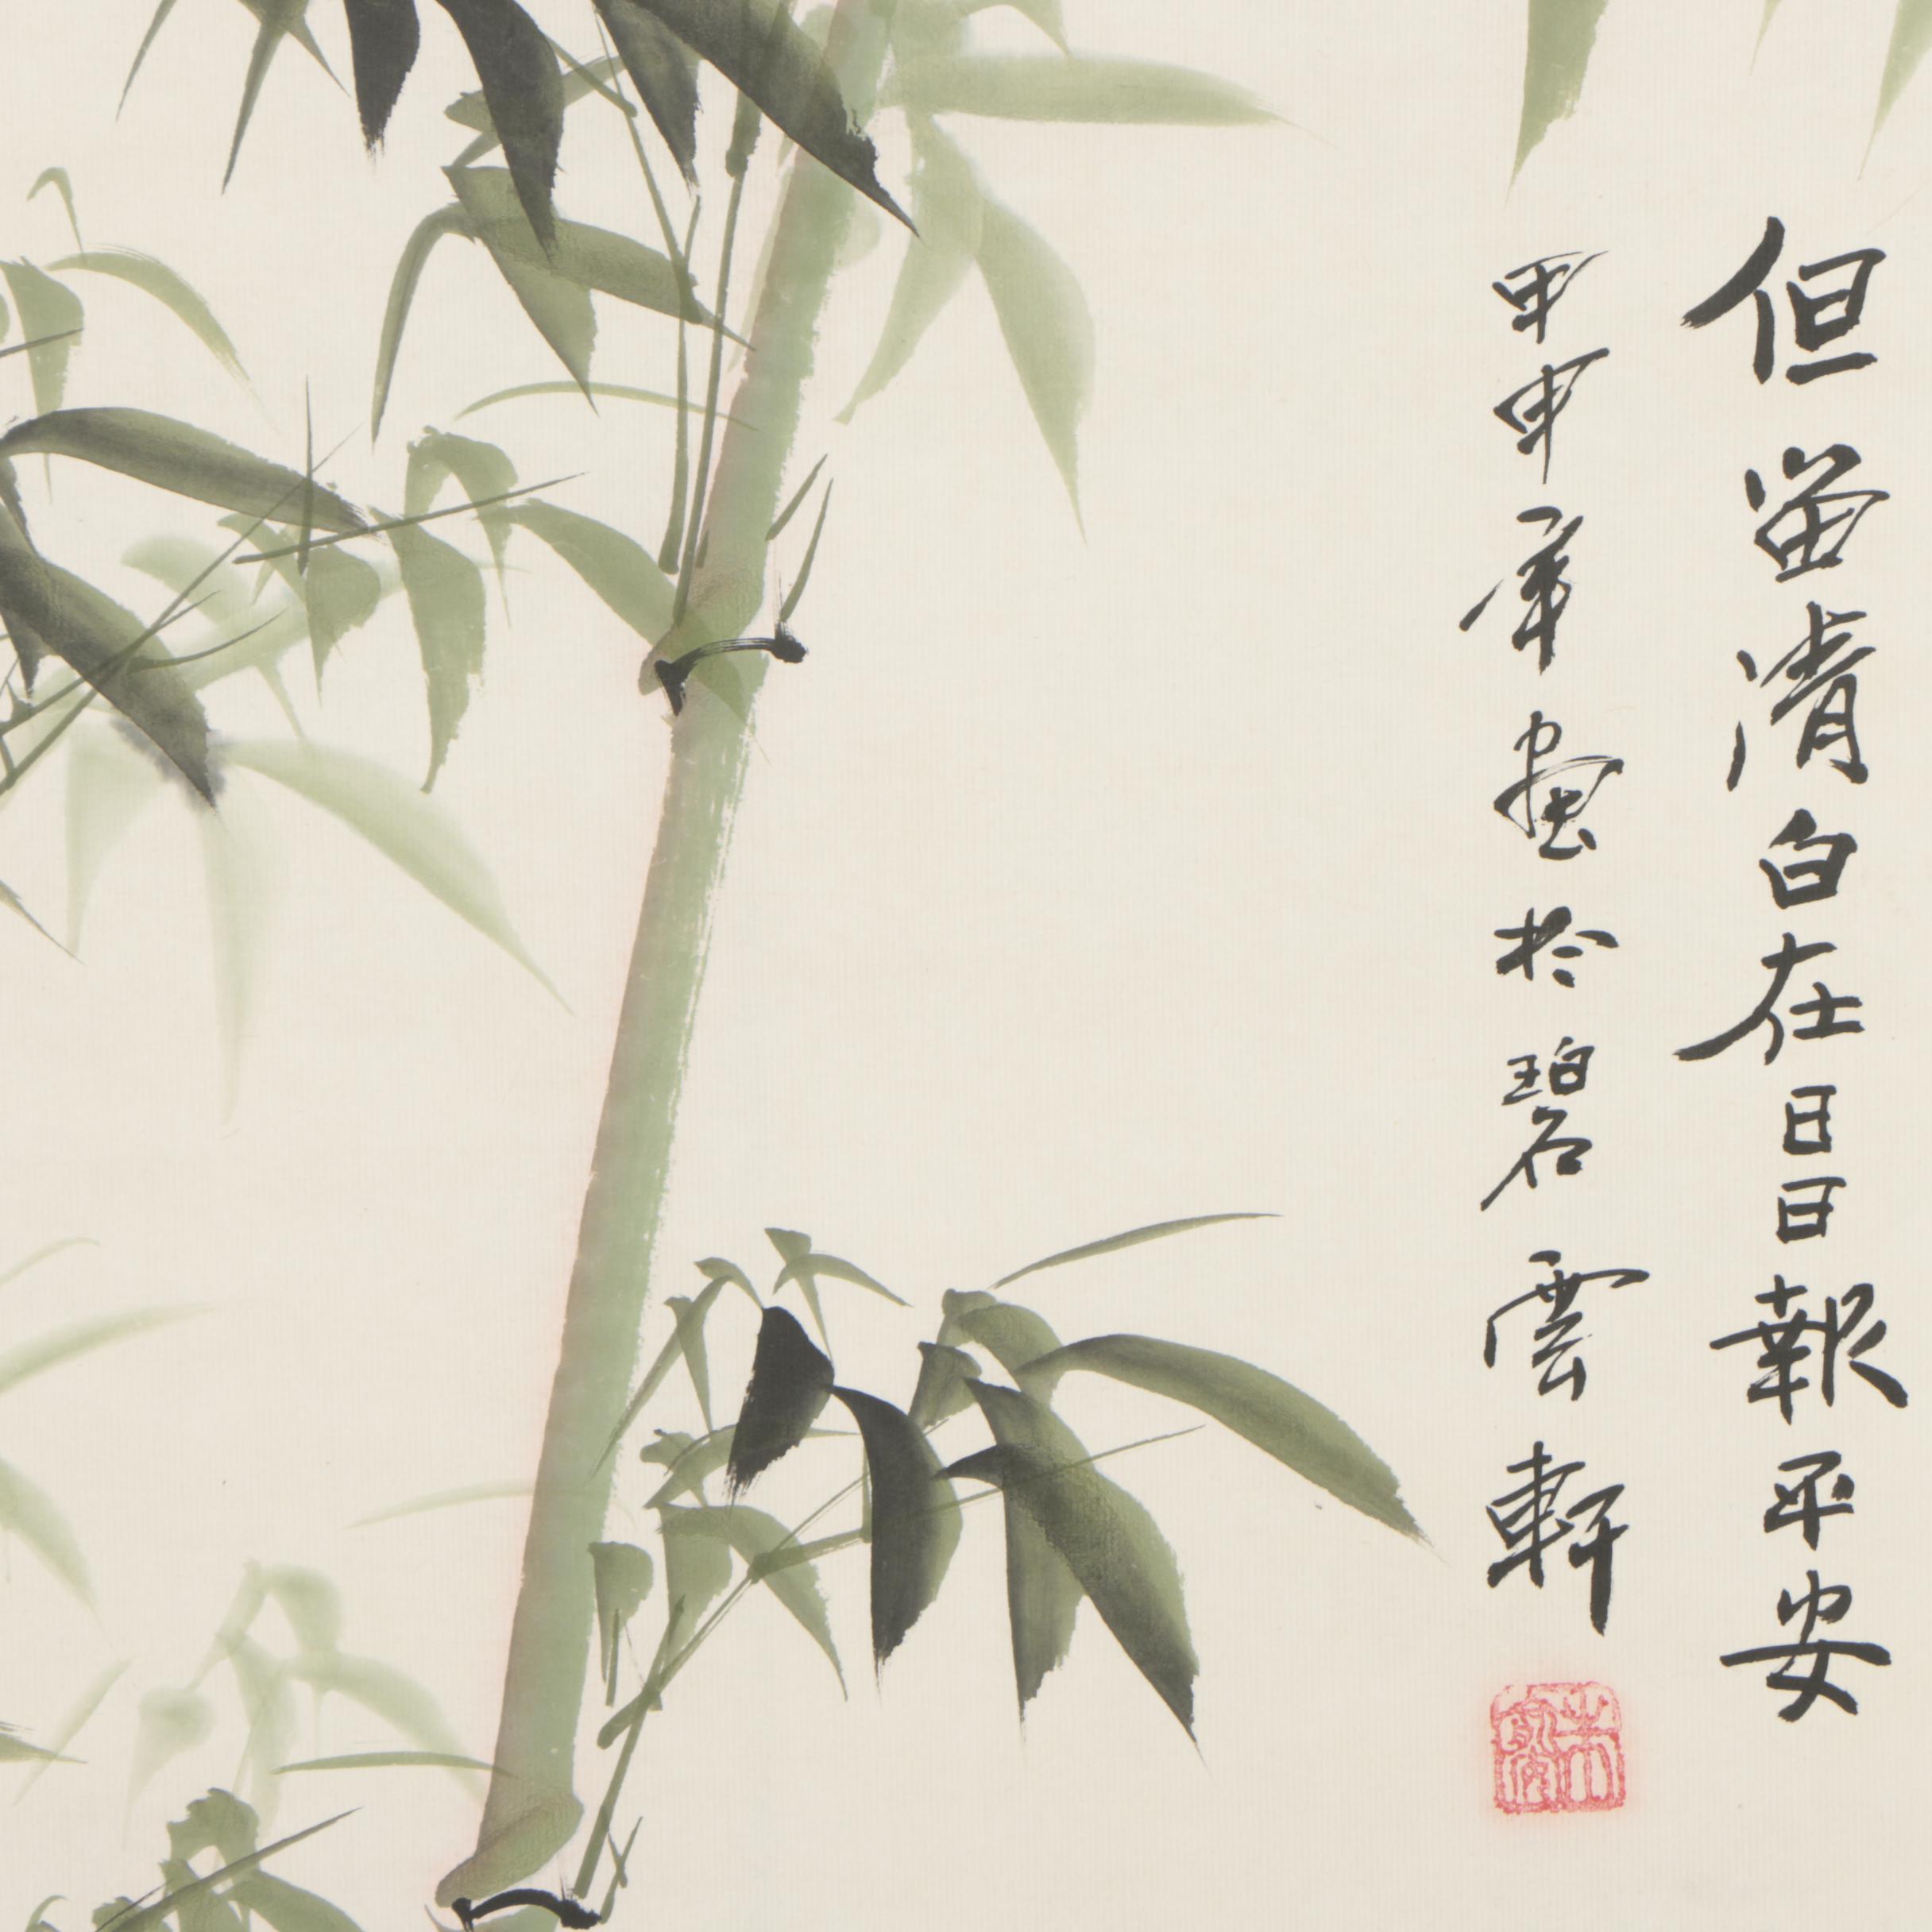 但留清白在日日報平安
甲申年畫於碧雲軒